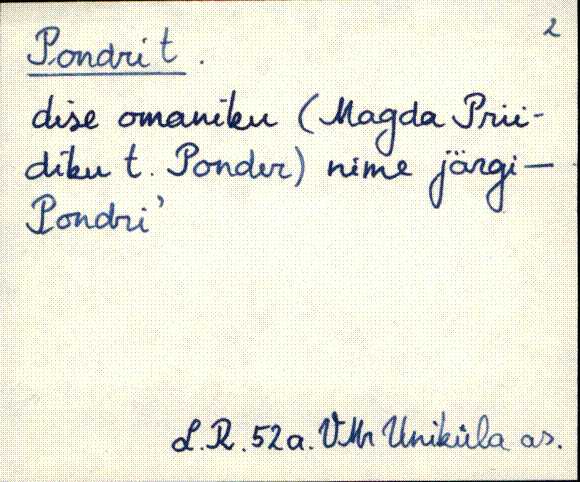 2
Pondri t.
dise omaniku (Magda Prii-
diku t. Ponder) nime järgi —
Pondri'
L.R. 52a. VMr Uniküla as.